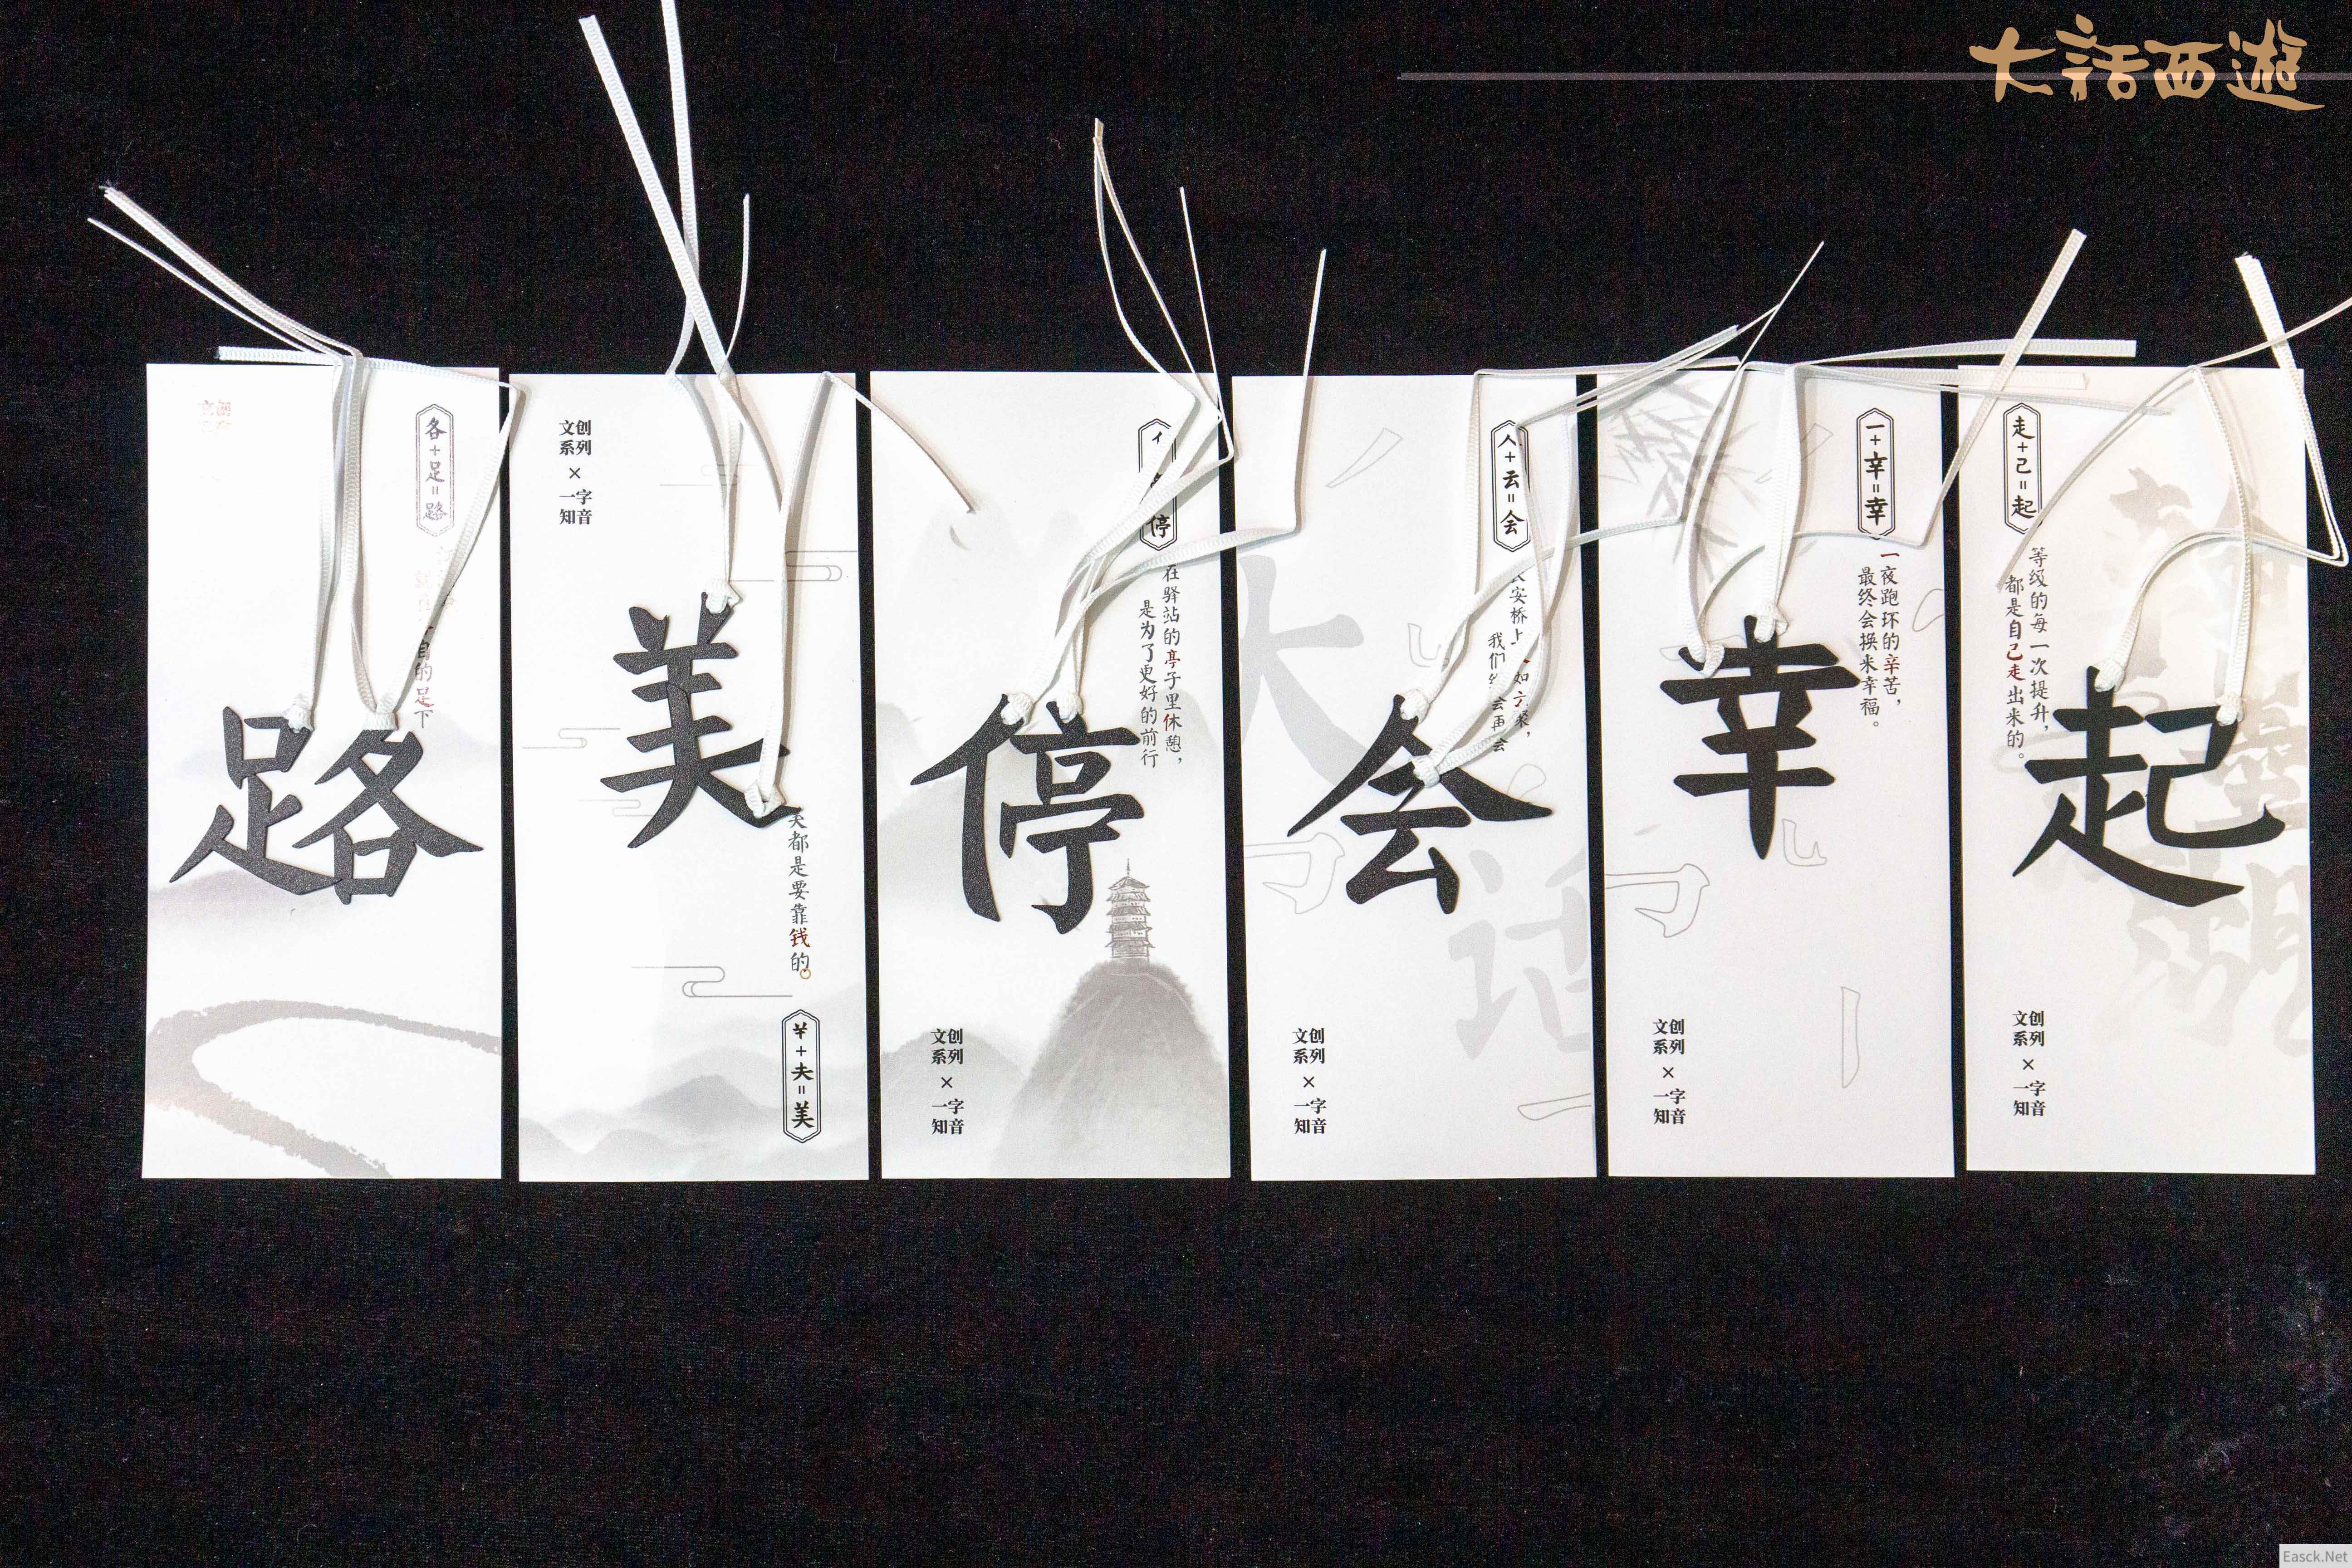 大話西遊
各+足=路
的足下
路
文创
系列
×
一字
知音
美
美都是要靠钱的
¥+夫=美
停
在驿站的亭子里休憩，
是为了更好的前行
停
文创
系列
×
一字
知音
人+云=会
安桥上
如云
我们
会再会
会
文创
系列
×
一字
知音
大
话
一+辛=幸
一夜跑环的辛苦，
最终会换来幸福。
幸
文创
系列
×
一字
知音
走+己=起
等级的每一次提升，
都是自己走出来的。
起
文创
系列
×
一字
知音
Easck.Net